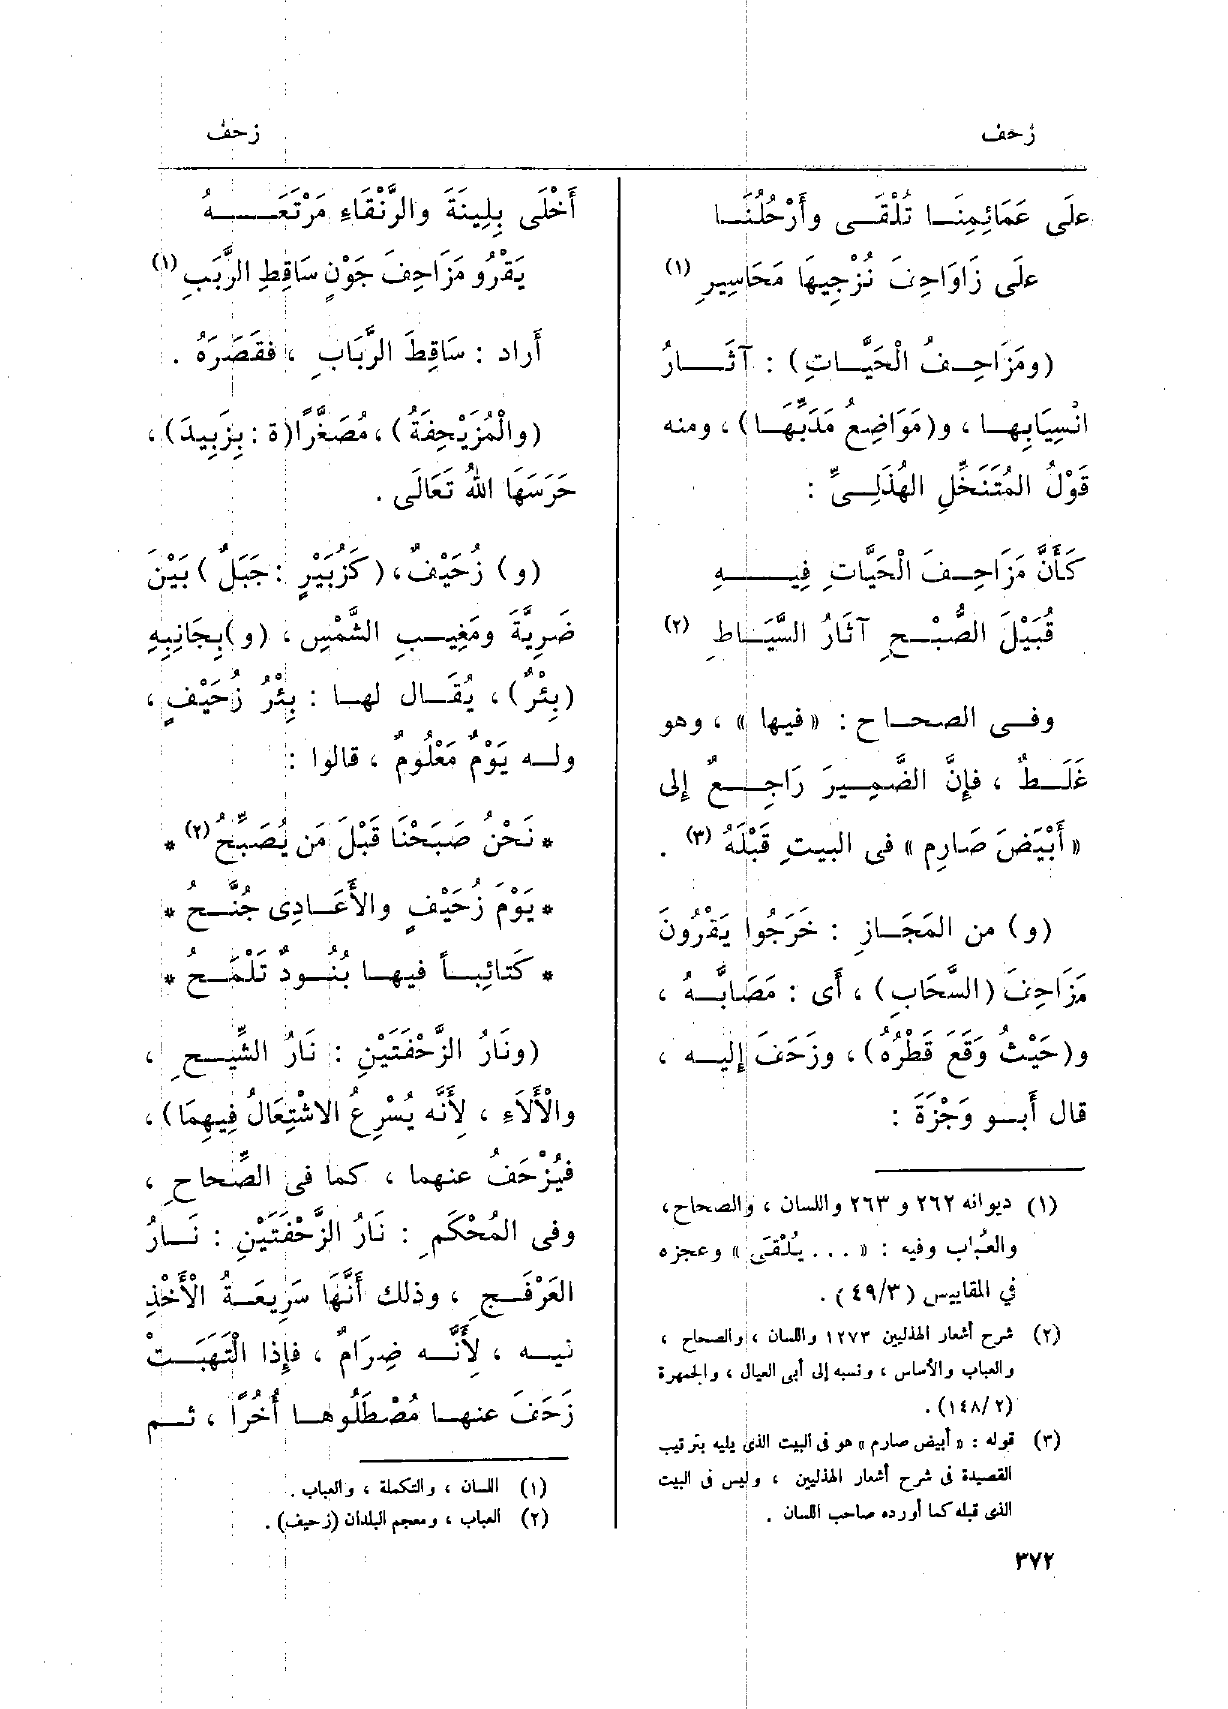 زحف
زحف
علَى عَمَائِمِنَا تُلْقَى وأَرْحُلُنَا
علَى زَاوَاحِفَ نُزْجِيهَا مَحَاسِيرِ (١)
(ومَزَاحِفُ الْحَيَّاتِ) : آثَارُ
انْسِيَابِها ، و(مَوَاضِعُ مَدَبِّهَا) ، ومنه
قَوْلُ المُتَنَخِّلِ الهُذَلِيِّ :
كَأَنَّ مَزَاحِفَ الْحَيَّاتِ فِيهِ
قُبَيْلَ الصُّبْحِ آثَارُ السِّيَاطِ (٢)
وفى الصحاح : «فيها» ، وهو
غَلَطٌ ، فإِنَّ الضَّمِيرَ رَاجِعٌ إِلى
«أَبْيَضَ صَارِمٍ» فى البيتِ قَبْلَهُ (٣) .
(و) من المَجَازِ : خَرَجُوا يَقْرُونَ
مَزَاحِفَ (السَّحَابِ) ، أَى : مَصَابَّهُ ،
و(حَيْثُ وَقَعَ قَطْرُهُ) ، وزَحَفَ إِليه ،
قال أَبو وَجْزَةَ :
(١) ديوانه ٢٦٢ و ٢٦٣ واللسان ، والصحاح ،
والعُبَاب وفيه : «... يُلْقَى» وعجزه
في المقاييس (٤٩/٣) .
(٢) شرح أشعار الهذليين ١٢٧٣ واللسان ، والصحاح ،
والعباب والأساس ، ونسبه إلى أبى العيال ، والجمهرة
(١٤٨/٢) .
(٣) قوله : «أبيض صارم» هو فى البيت الذى يليه بترتيب
القصيدة فى شرح أشعار الهذليين ، وليس فى البيت
الذى قبله كما أورده صاحب اللسان .
٣٧٢
أَخْلَى بِلِينَةَ والرَّنْقَاءِ مَرْتَعَهُ
يَقْرُو مَزَاحِفَ جَوْنٍ سَاقِطِ الرَّبَبِ (١)
أَراد : سَاقِطَ الرَّبَابِ ، فقَصَرَهُ .
(والْمُزَيْحِفَةُ) ، مُصَغَّرًا (ة : بِزَبِيدَ) ،
حَرَسَهَا اللهُ تَعَالَى .
(و) زُحَيْفٌ ، (كَزُبَيْرٍ : جَبَلٌ) بَيْنَ
ضَرِيَّةَ ومَغِيبِ الشَّمْسِ ، (و) بِجَانِبِهِ
(بِئْرٌ) ، يُقَال لها : بِئْرُ زُحَيْفٍ ،
وله يَوْمٌ مَعْلُومٌ ، قالوا :
* نَحْنُ صَبَحْنَا قَبْلَ مَن يُصَبِّحُ (٢) *
* يَوْمَ زُحَيْفٍ والأَعَادِى جُنَّحُ *
* كَتَائِباً فيها بُنُودٌ تَلْمَحُ *
(ونَارُ الزَّحْفَتَيْنِ : نَارُ الشِّيحِ ،
والْأَلَاءِ ، لِأَنَّه يُسْرِعُ الاشْتِعَالُ فِيهِمَا) ،
فيُزْحَفُ عنهما ، كما فى الصِّحاحِ ،
وفى المُحْكَمِ : نَارُ الزَّحْفَتَيْنِ : نَارُ
العَرْفَجِ ، وذلك أَنَّهَا سَرِيعَةُ الْأَخْذِ
فيه ، لِأَنَّه ضِرَامٌ ، فإِذا الْتَهَبَتْ
زَحَفَ عنها مُصْطَلُوها أُخُرًا ، ثم
(١) اللسان ، والتكملة ، والعباب .
(٢) العباب ، ومعجم البلدان (زحيف) .